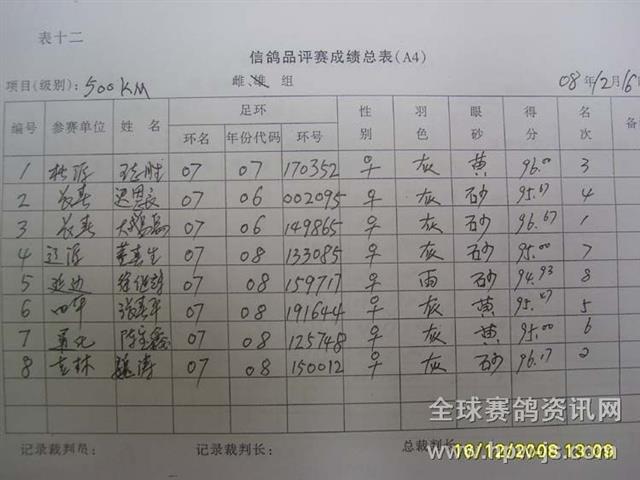 表十二
信鸽品评赛成绩总表(A4)
项目(级别): 500KM 雌、雄 组 08年12月16
编号 参赛单位 姓 名 足环 性别 羽色 眼砂 得分 名次 备
环名 年份代码 环号
1 07 07 170352 ♀ 灰 黄 96.00 3
2 长春 07 06 002095 ♀ 灰 砂 95.67 4
3 长春 07 06 149865 ♀ 灰 砂 96.67 1
4 辽源 07 08 133085 ♀ 灰 砂 95.00 7
5 延边 07 08 159717 ♀ 雨 砂 94.93 8
6 四平 07 08 191644 ♀ 灰 黄 95.47 5
7 07 08 125748 ♀ 灰 黄 95.00 6
8 吉林 魏涛 07 08 150012 ♀ 灰 砂 96.17 2
全球赛鸽资讯网
记录裁判员: 记录裁判长: 总裁判长:
16/12/2008 13:09